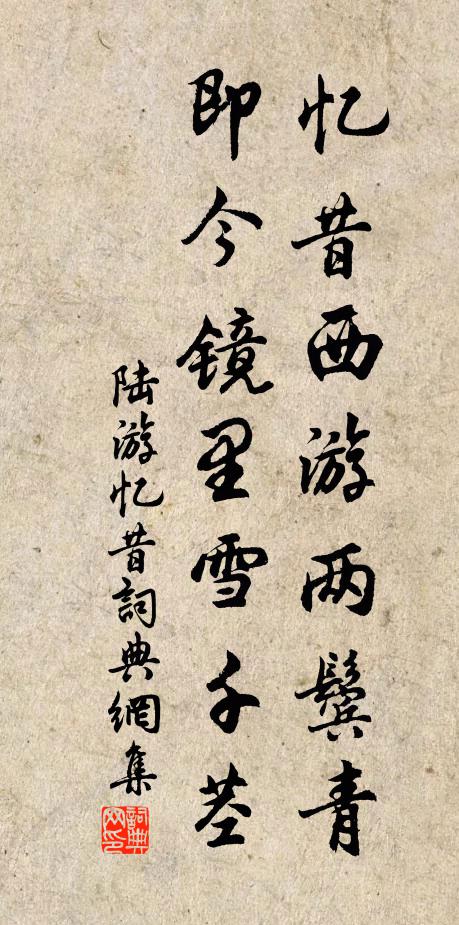 忆昔西游两鬓青
即今镜里雪千茎
陆游忆昔詞典網集
詞典网印